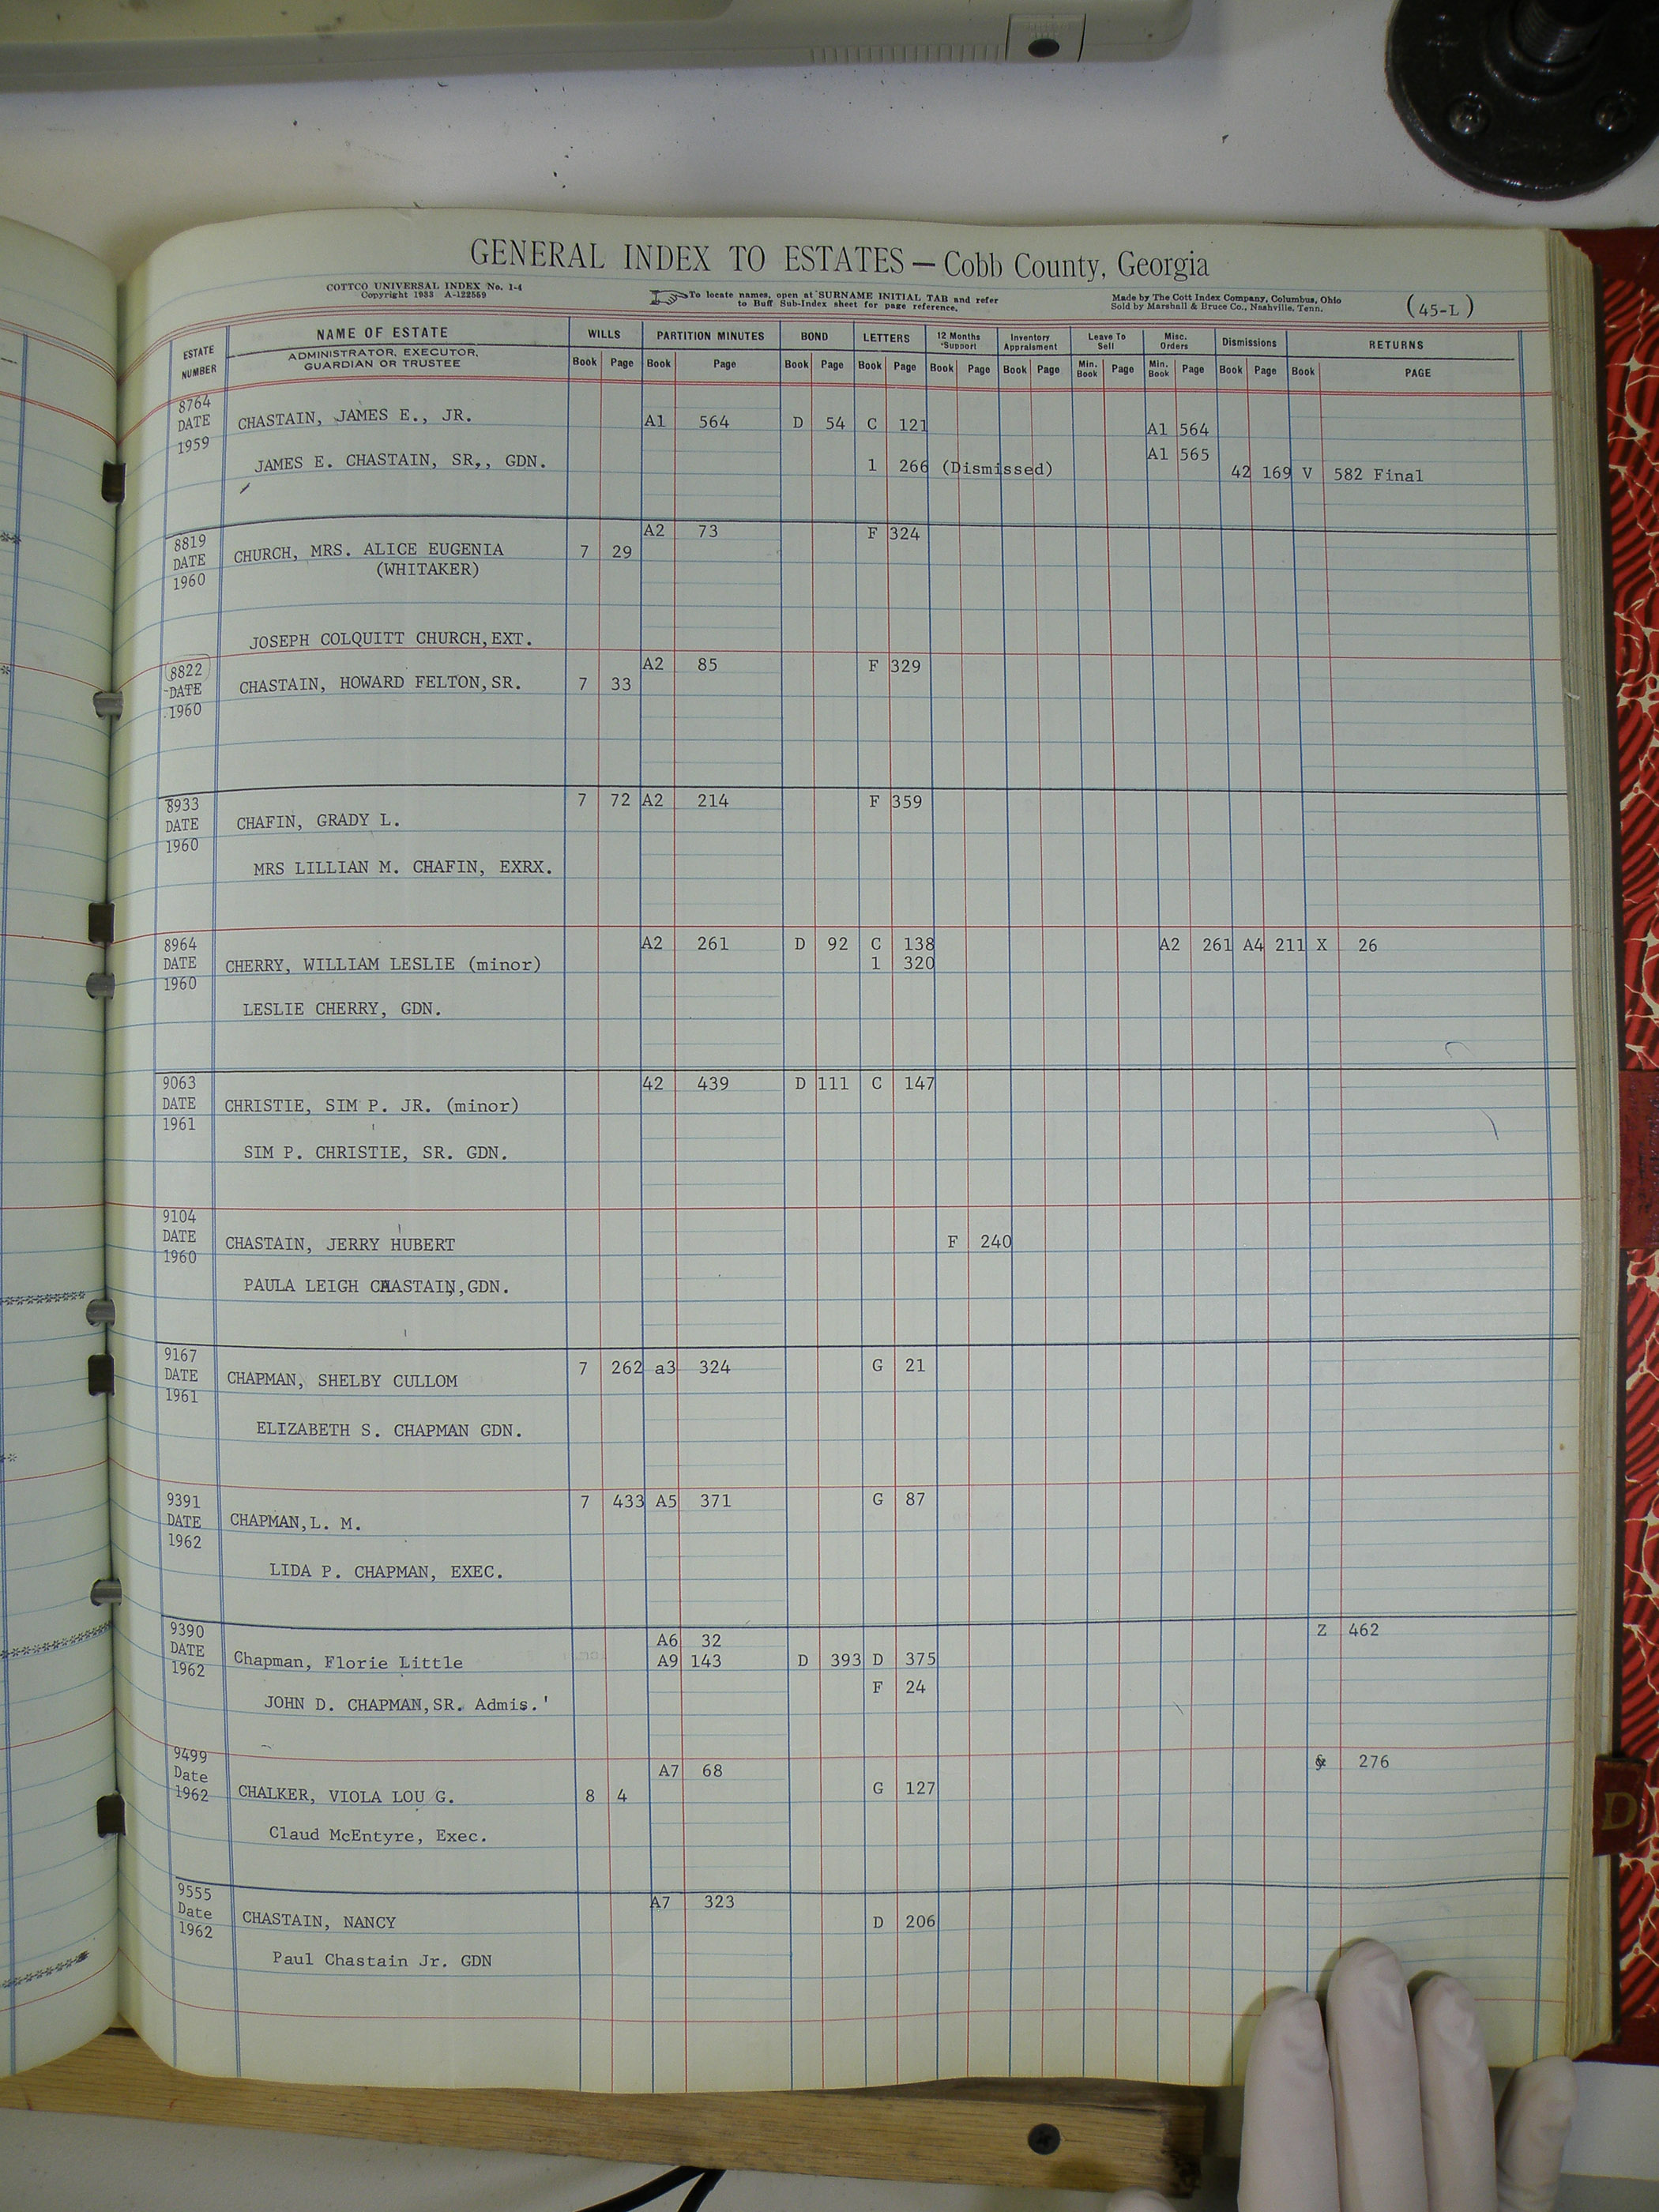 GENERAL INDEX TO ESTATES — Cobb County, Georgia
COTTCO UNIVERSAL INDEX No. 1-4
Copyright 1933 A-122559
To locate names, open at SURNAME INITIAL TAB and refer
to Buff Sub-Index sheet for page reference.
Made by The Cott Index Company, Columbus, Ohio
Sold by Marshall & Bruce Co., Nashville, Tenn.
(45-L)
ESTATE NUMBER NAME OF ESTATE WILLS PARTITION MINUTES BOND LETTERS 12 Months Support Inventory Appraisment Leave To Sell Misc. Orders Dismissions RETURNS
ADMINISTRATOR, EXECUTOR,
GUARDIAN OR TRUSTEE
Book Page Book Page Book Page Book Page Book Page Book Page Min. Book Page Min. Book Page Book Page Book PAGE
8764
DATE CHASTAIN, JAMES E., JR. A1 564 D 54 C 121 A1 564
1959 A1 565
JAMES E. CHASTAIN, SR,, GDN. 1 266 (Dismissed) 42 169 V 582 Final
8819 A2 73 F 324
DATE CHURCH, MRS. ALICE EUGENIA 7 29
1960 (WHITAKER)
JOSEPH COLQUITT CHURCH,EXT.
8822 A2 85 F 329
DATE CHASTAIN, HOWARD FELTON,SR. 7 33
1960
8933 7 72 A2 214 F 359
DATE CHAFIN, GRADY L.
1960
MRS LILLIAN M. CHAFIN, EXRX.
8964 A2 261 D 92 C 138 A2 261 A4 211 X 26
DATE CHERRY, WILLIAM LESLIE (minor) 1 320
1960
LESLIE CHERRY, GDN.
9063 42 439 D 111 C 147
DATE CHRISTIE, SIM P. JR. (minor)
1961
SIM P. CHRISTIE, SR. GDN.
9104
DATE CHASTAIN, JERRY HUBERT F 240
1960
PAULA LEIGH CHASTAIN,GDN.
9167 7 262 a3 324 G 21
DATE CHAPMAN, SHELBY CULLOM
1961
ELIZABETH S. CHAPMAN GDN.
9391 7 433 A5 371 G 87
DATE CHAPMAN,L. M.
1962
LIDA P. CHAPMAN, EXEC.
9390 A6 32 Z 462
DATE Chapman, Florie Little A9 143 D 393 D 375
1962 F 24
JOHN D. CHAPMAN,SR. Admis.'
9499 A7 68 276
Date G 127
1962 CHALKER, VIOLA LOU G. 8 4
Claud McEntyre, Exec.
9555 A7 323
Date CHASTAIN, NANCY D 206
1962
Paul Chastain Jr. GDN
D